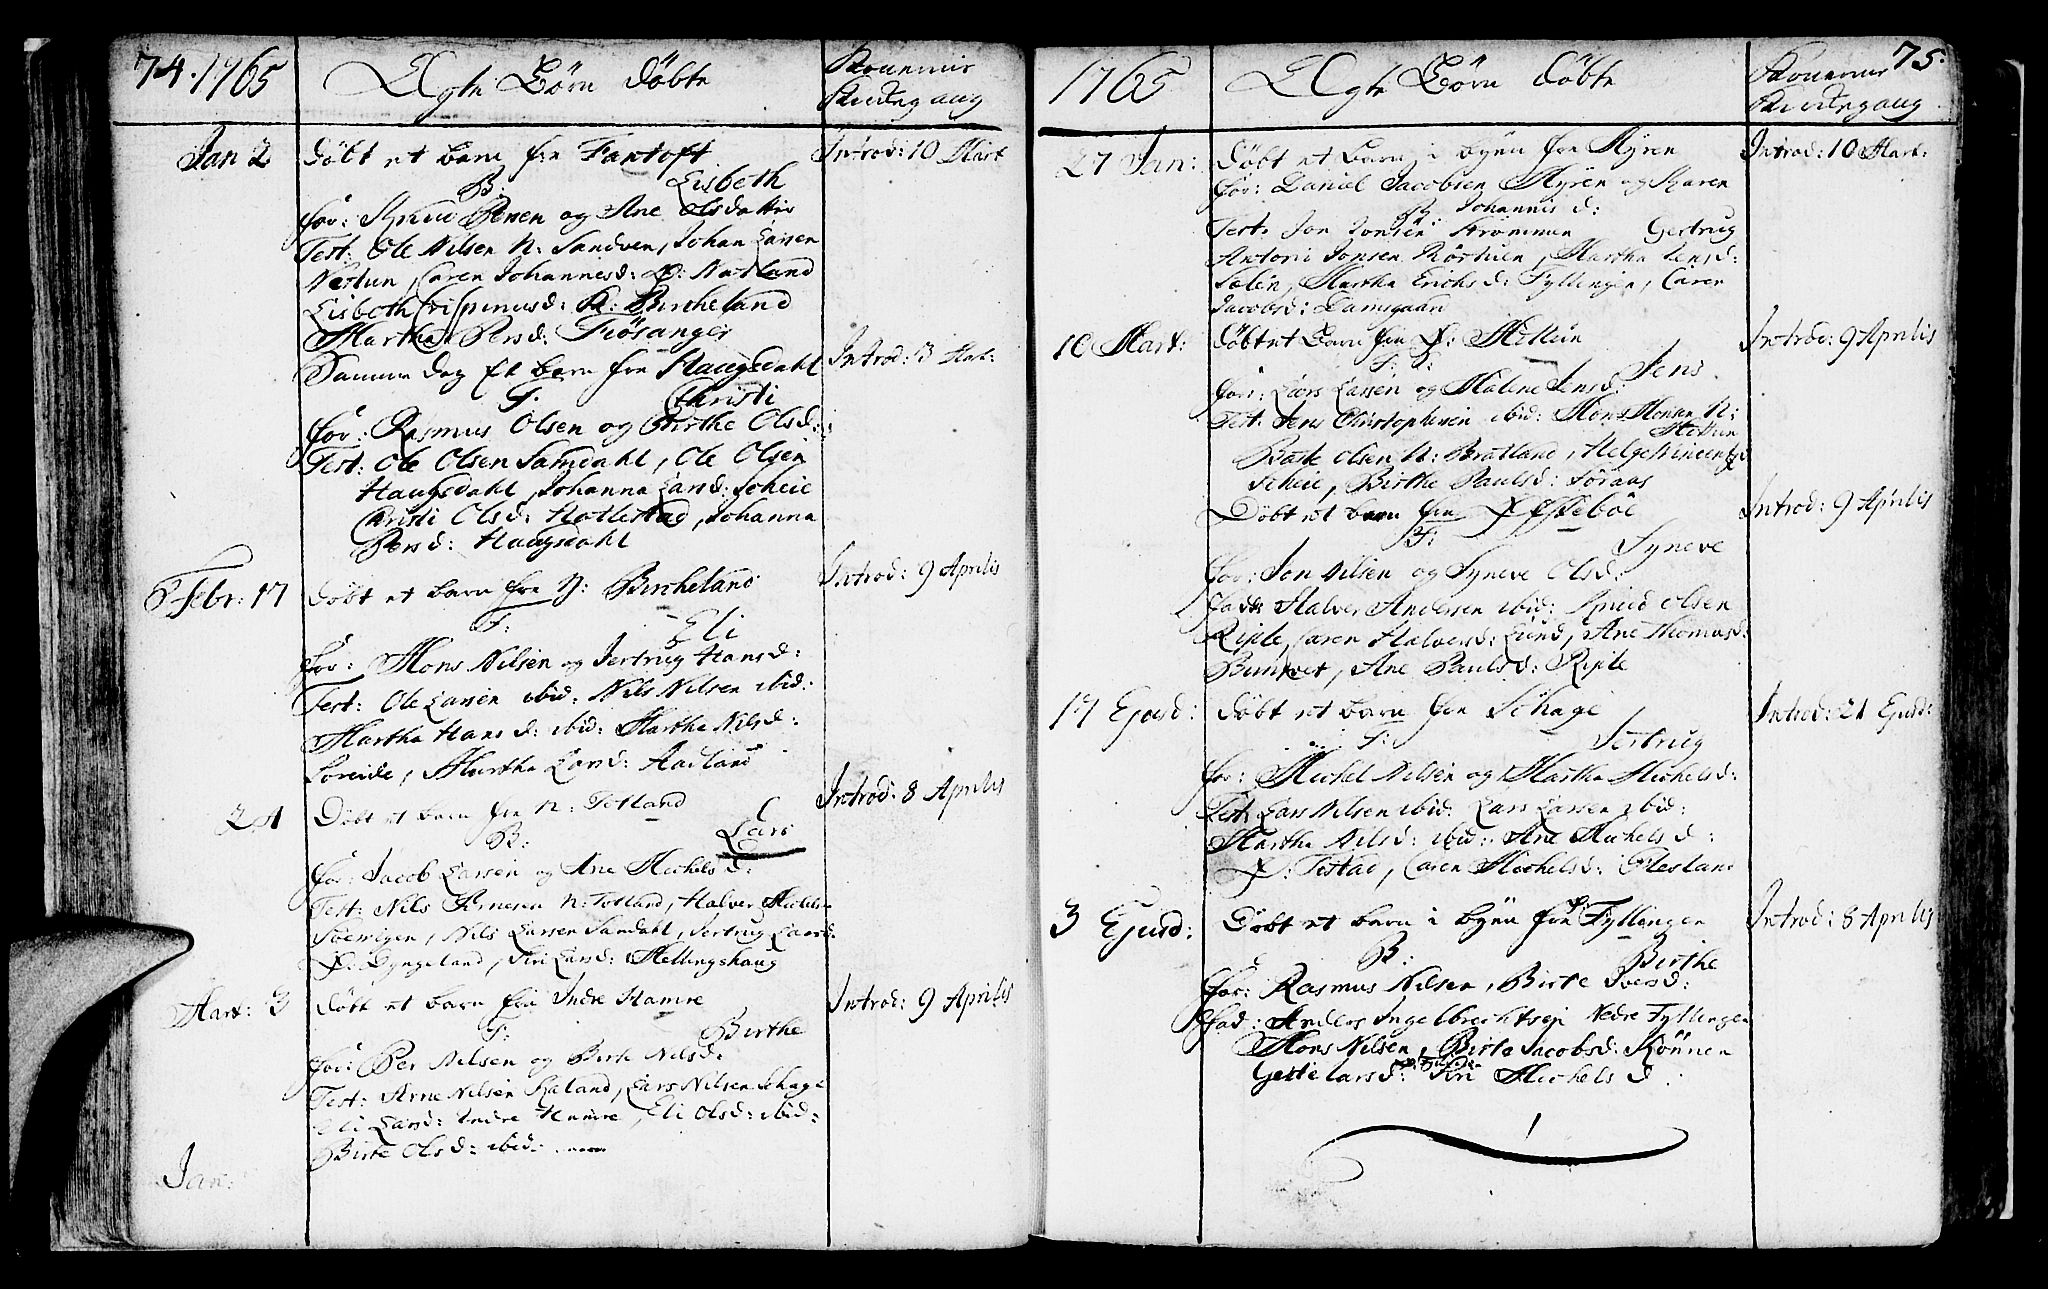 74. 1765
Ægte Börn döbte
Konernis
Kirkegang
Jan 2
döbt et barn fra Fantoft
Introd: 10 Mart
B:
Lisbeth
for: Knud Persen og Ane Olsdatter
Test: Ole Nilsen N: Sandven, Johan Larsen
Nestun, Caren Johannesd: Ø: Natland
Lisbeth Crispinusd: N: Birkeland
Martha Persd: Fiösanger
Samme dag et barn fra Haugsdahl
Introd: 3 Mart:
F.
Christi
for: Rasmus Olsen og Birthe Olsd:
Test: Ole Olsen Samdahl, Ole Olsen
Haugsdahl, Johanna Larsd: Scheie
Christi Olsd: Hatlestad, Johanna
Persd: Haugsdahl
Febr: 17
döbt et barn fra N: Birkeland
Introd: 9 Aprilis
F:
Eli
for: Mons Nilsen og Jertrug Hansd:
Test: Ole Larsen ibid: Nils Nilsen ibid:
Martha Hansd: ibid: Martha Nilsd:
Soreide, Martha Larsd: Aadland
24
Döbt et barn fra N: Totland
Introd: 8 Aprilis
B:
Lars
for: Jacob Larsen og Ane Michelsd:
Test: Nils Arnesen N: Totland, Halver
Nils Larsen Samdahl, Jertrug Larsd:
Ø: Lyngeland, Siri Larsd: Hellingshaug
Mart: 3
döbt et barn fra Indre Hamre
Introd: 9 Aprilis
F:
Birthe
for: Per Nilsen og Birte Nilsd:
Test: Arne Nilsen Raland, Lars Nilsen Schage
Eli Larsd: Indre Hamre, Eli Olsd: ibid:
Birte Olsd: ibid:
Jan:
75.
1765
Ægte Börn döbte
Konernis
Kirkegang
27 Jan:
Döbt et barn i byen fra Myren
Introd: 10 Mart:
for: Daniel Jacobsen Myren og Karen
B. Johannisd:
Test: Jon Jonsen Strommen
Gertrug
Antoni Jonsen Martha Jensd:
Martha Erichsd: Fyllingen, Caren
Jacobsd: Damsgaard
10 Mart:
döbt et barn fra Ø: Mittun
Introd: 9 Aprilis
Jens
for: Lars Larsen og Malene Jensd:
Test: Jens Christophersen ibid: Mons Monsen N:
Mittun
Baste Olsen N: Bratland, Helge Vincentsd
Scheie, Birthe Paulsd: Söraas
Döbt et barn fra Ø Æsseböe
Introd: 9 Aprilis
F:
Syneve
for: Jon Nilsen og Syneve Olsd:
fadd: Halver Andersen ibid: Knud Olsen
Riple, Caren Halversd: Lund, Ane Thomasd:
Birkvet, Ane Paulsd: Riple
17 Ejusd:
döbt et barn fra Schage
Introd: 21 Ejusd:
F:
Jertrug
for: Michel Nilsen og Martha Michelsd:
Test: Lars Nilsen ibid: Lars Larsen ibid:
Martha Nilsd: ibid: Ane Michelsd:
Ø: Titlestad, Caren Michelsd: Flesland
3 Ejusd:
Döbt et barn i byen fra Fyllingen
Introd: 8 Aprilis
B:
Birthe
for: Rasmus Nilsen, Birte Iversd:
fad: Anders Ingelbrechtsen Nedre Fyllingen
Mons Nilsen, Birte Jacobsd: Rönnen
Gertie Larsd: Siri Michelsd: